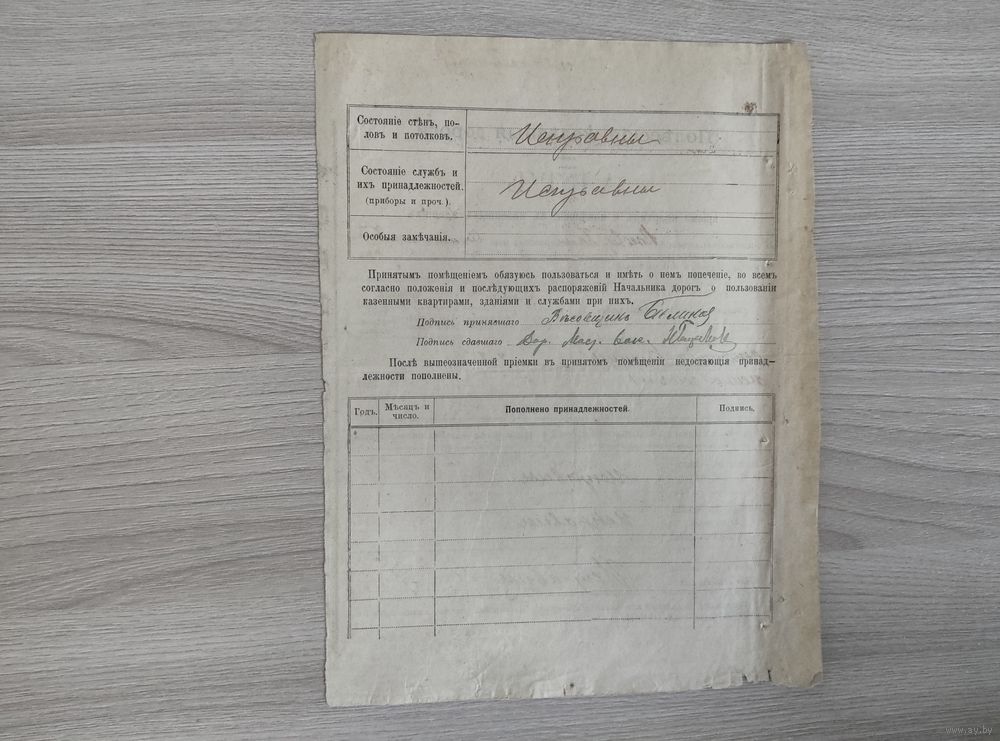 Состояніе стѣнъ, по-
ловъ и потолковъ.
Исправны
Состояніе службъ и
ихъ принадлежностей.
(приборы и проч.).
Исправны
Особыя замѣчанія.
Принятымъ помѣщеніемъ обязуюсь пользоваться и имѣть о немъ попеченіе, во всемъ
согласно положенія и послѣдующихъ распоряженій Начальника дорогъ о пользованіи
казенными квартирами, зданіями и службами при нихъ.
Подпись принявшаго
Подпись сдавшаго Дор. Маст.
Послѣ вышеозначенной пріемки въ принятомъ помѣщеніи недостающія принад-
лежности пополнены.
Годъ. Мѣсяцъ и число. Пополнено принадлежностей. Подпись.
www.ay.by